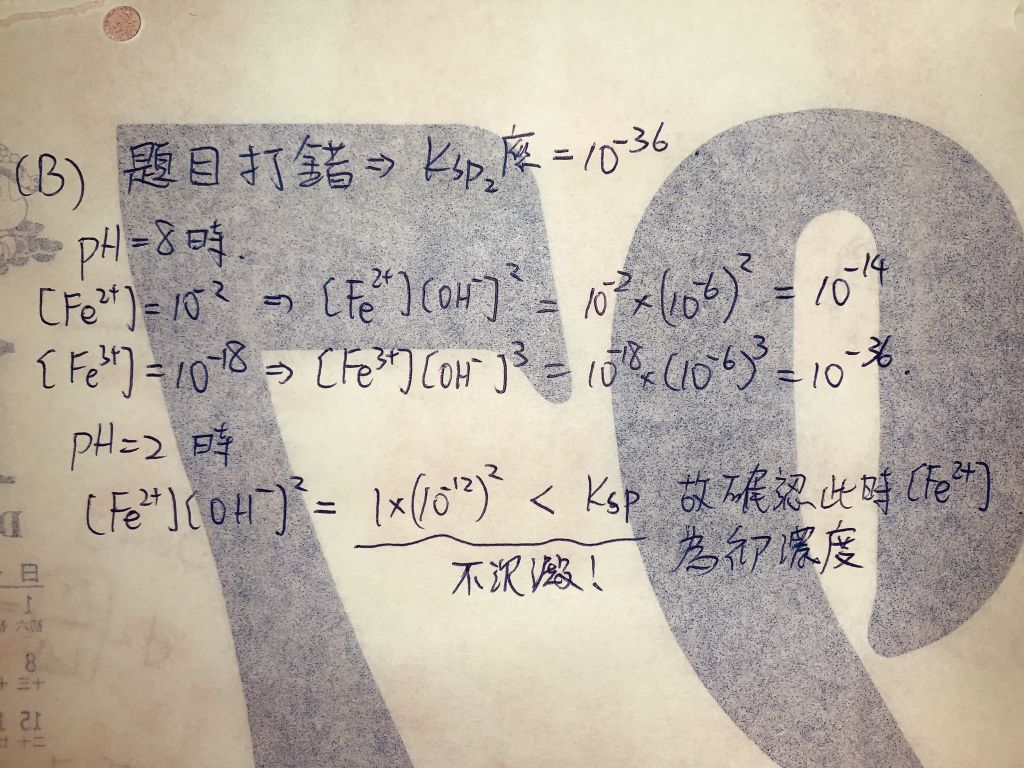 (B) 題目打錯 ⇒ Ksp₂應 = 10⁻³⁶.
pH = 8 時.
[Fe²⁺] = 10⁻² ⇒ [Fe²⁺][OH⁻]² = 10⁻² × (10⁻⁶)² = 10⁻¹⁴
[Fe³⁺] = 10⁻¹⁸ ⇒ [Fe³⁺][OH⁻]³ = 10⁻¹⁸ × (10⁻⁶)³ = 10⁻³⁶.
pH = 2 時
[Fe²⁺][OH⁻]² = 1 × (10⁻¹²)² < Ksp 故確認此時[Fe²⁺]
不沉澱! 為初濃度
日
1
初六
8
十三
15
二十